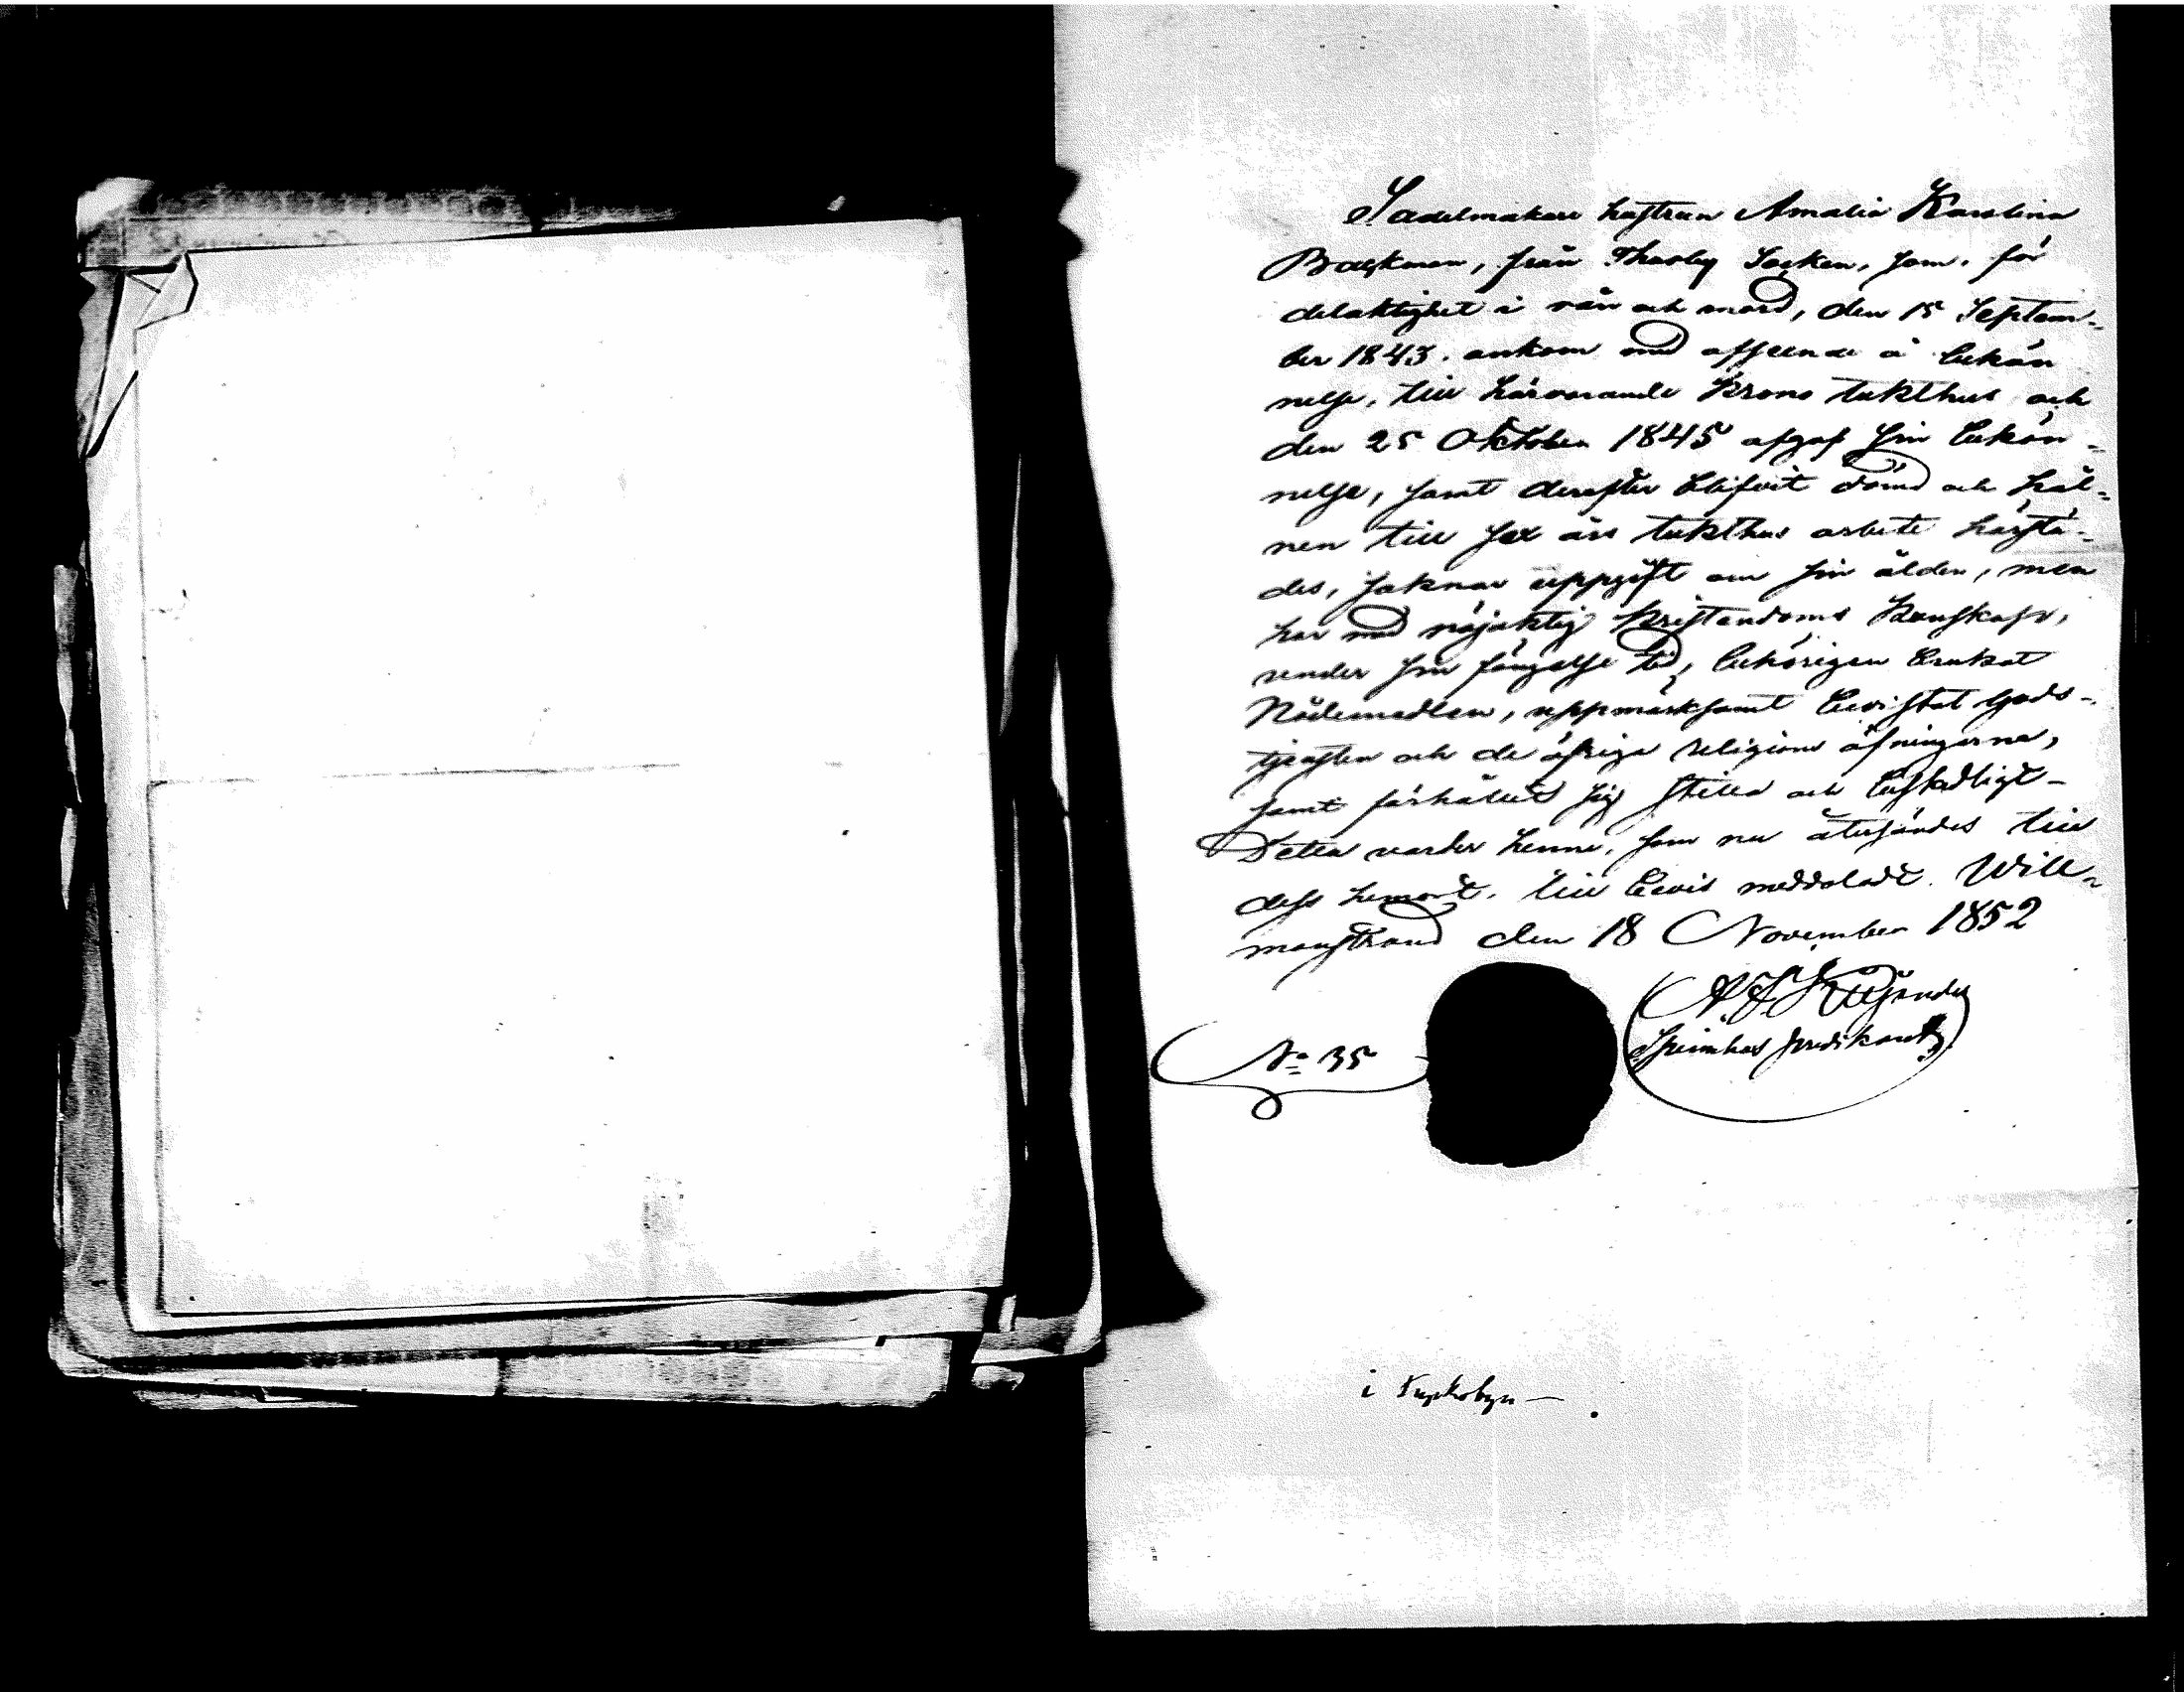 Sadelmakare hustrun Amalia Karolina
Backman, från Thorby Socken, som, för
delaktighet i rån och mord, den 15 Septem-
ber 1843. ankom med afseende å bekän
nelse, till härvarande Krono tukthus och
den 25 Oktober 1845 afgaf sin bekän-
nelse, samt derefter blifvit dömd och häl-
nen till sex års tukthus arbete härstä-
des, saknar uppgift om sin ålder, men
har med nöjaktig kristendoms kunskap,
under sin fängelse tid, behörigen brukat
Nådemedlen, uppmärksamt bevistat Guds-
tjensten och de öfriga religions öfningarna,
samt förhållit sig stilla och beskedligt-
Detta varder henne, som nu återsändes till
dess hemort, till bevis meddeladt. Will-
manstrand den 18 November 1852
Spinnhus predikant
No 35